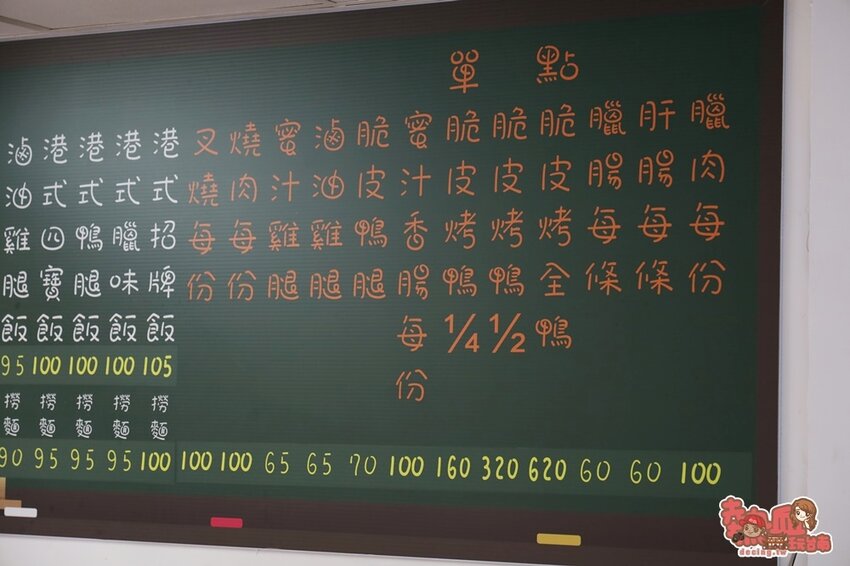 單點
臘肉每份 100
肝腸每條 60
臘腸每條 60
脆皮烤全鴨 620
脆皮烤鴨1/2 320
脆皮烤鴨1/4 160
蜜汁香腸每份 100
脆皮鴨腿 70
滷油雞腿 65
蜜汁雞腿 65
燒肉每份 100
叉燒每份 100
港式招牌飯 105 撈麵 100
港式臘味飯 100 撈麵 95
港式鴨腿飯 100 撈麵 95
港式四寶飯 100 撈麵 95
滷油雞腿飯 95 撈麵 90
decing.tw